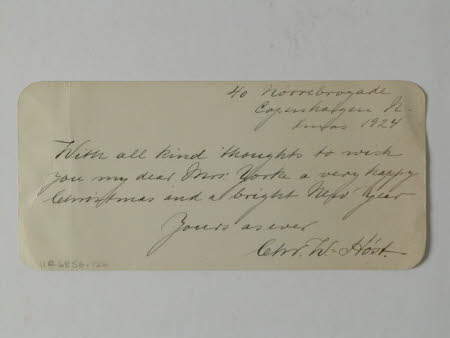 40 Nörrebrogade
Copenhagen N.
Xmas 1924
With all kind thoughts to wish
you my dear Mrs Yorke a very happy
Christmas and a bright New Year
Yours as ever
Chr. W. Höst.